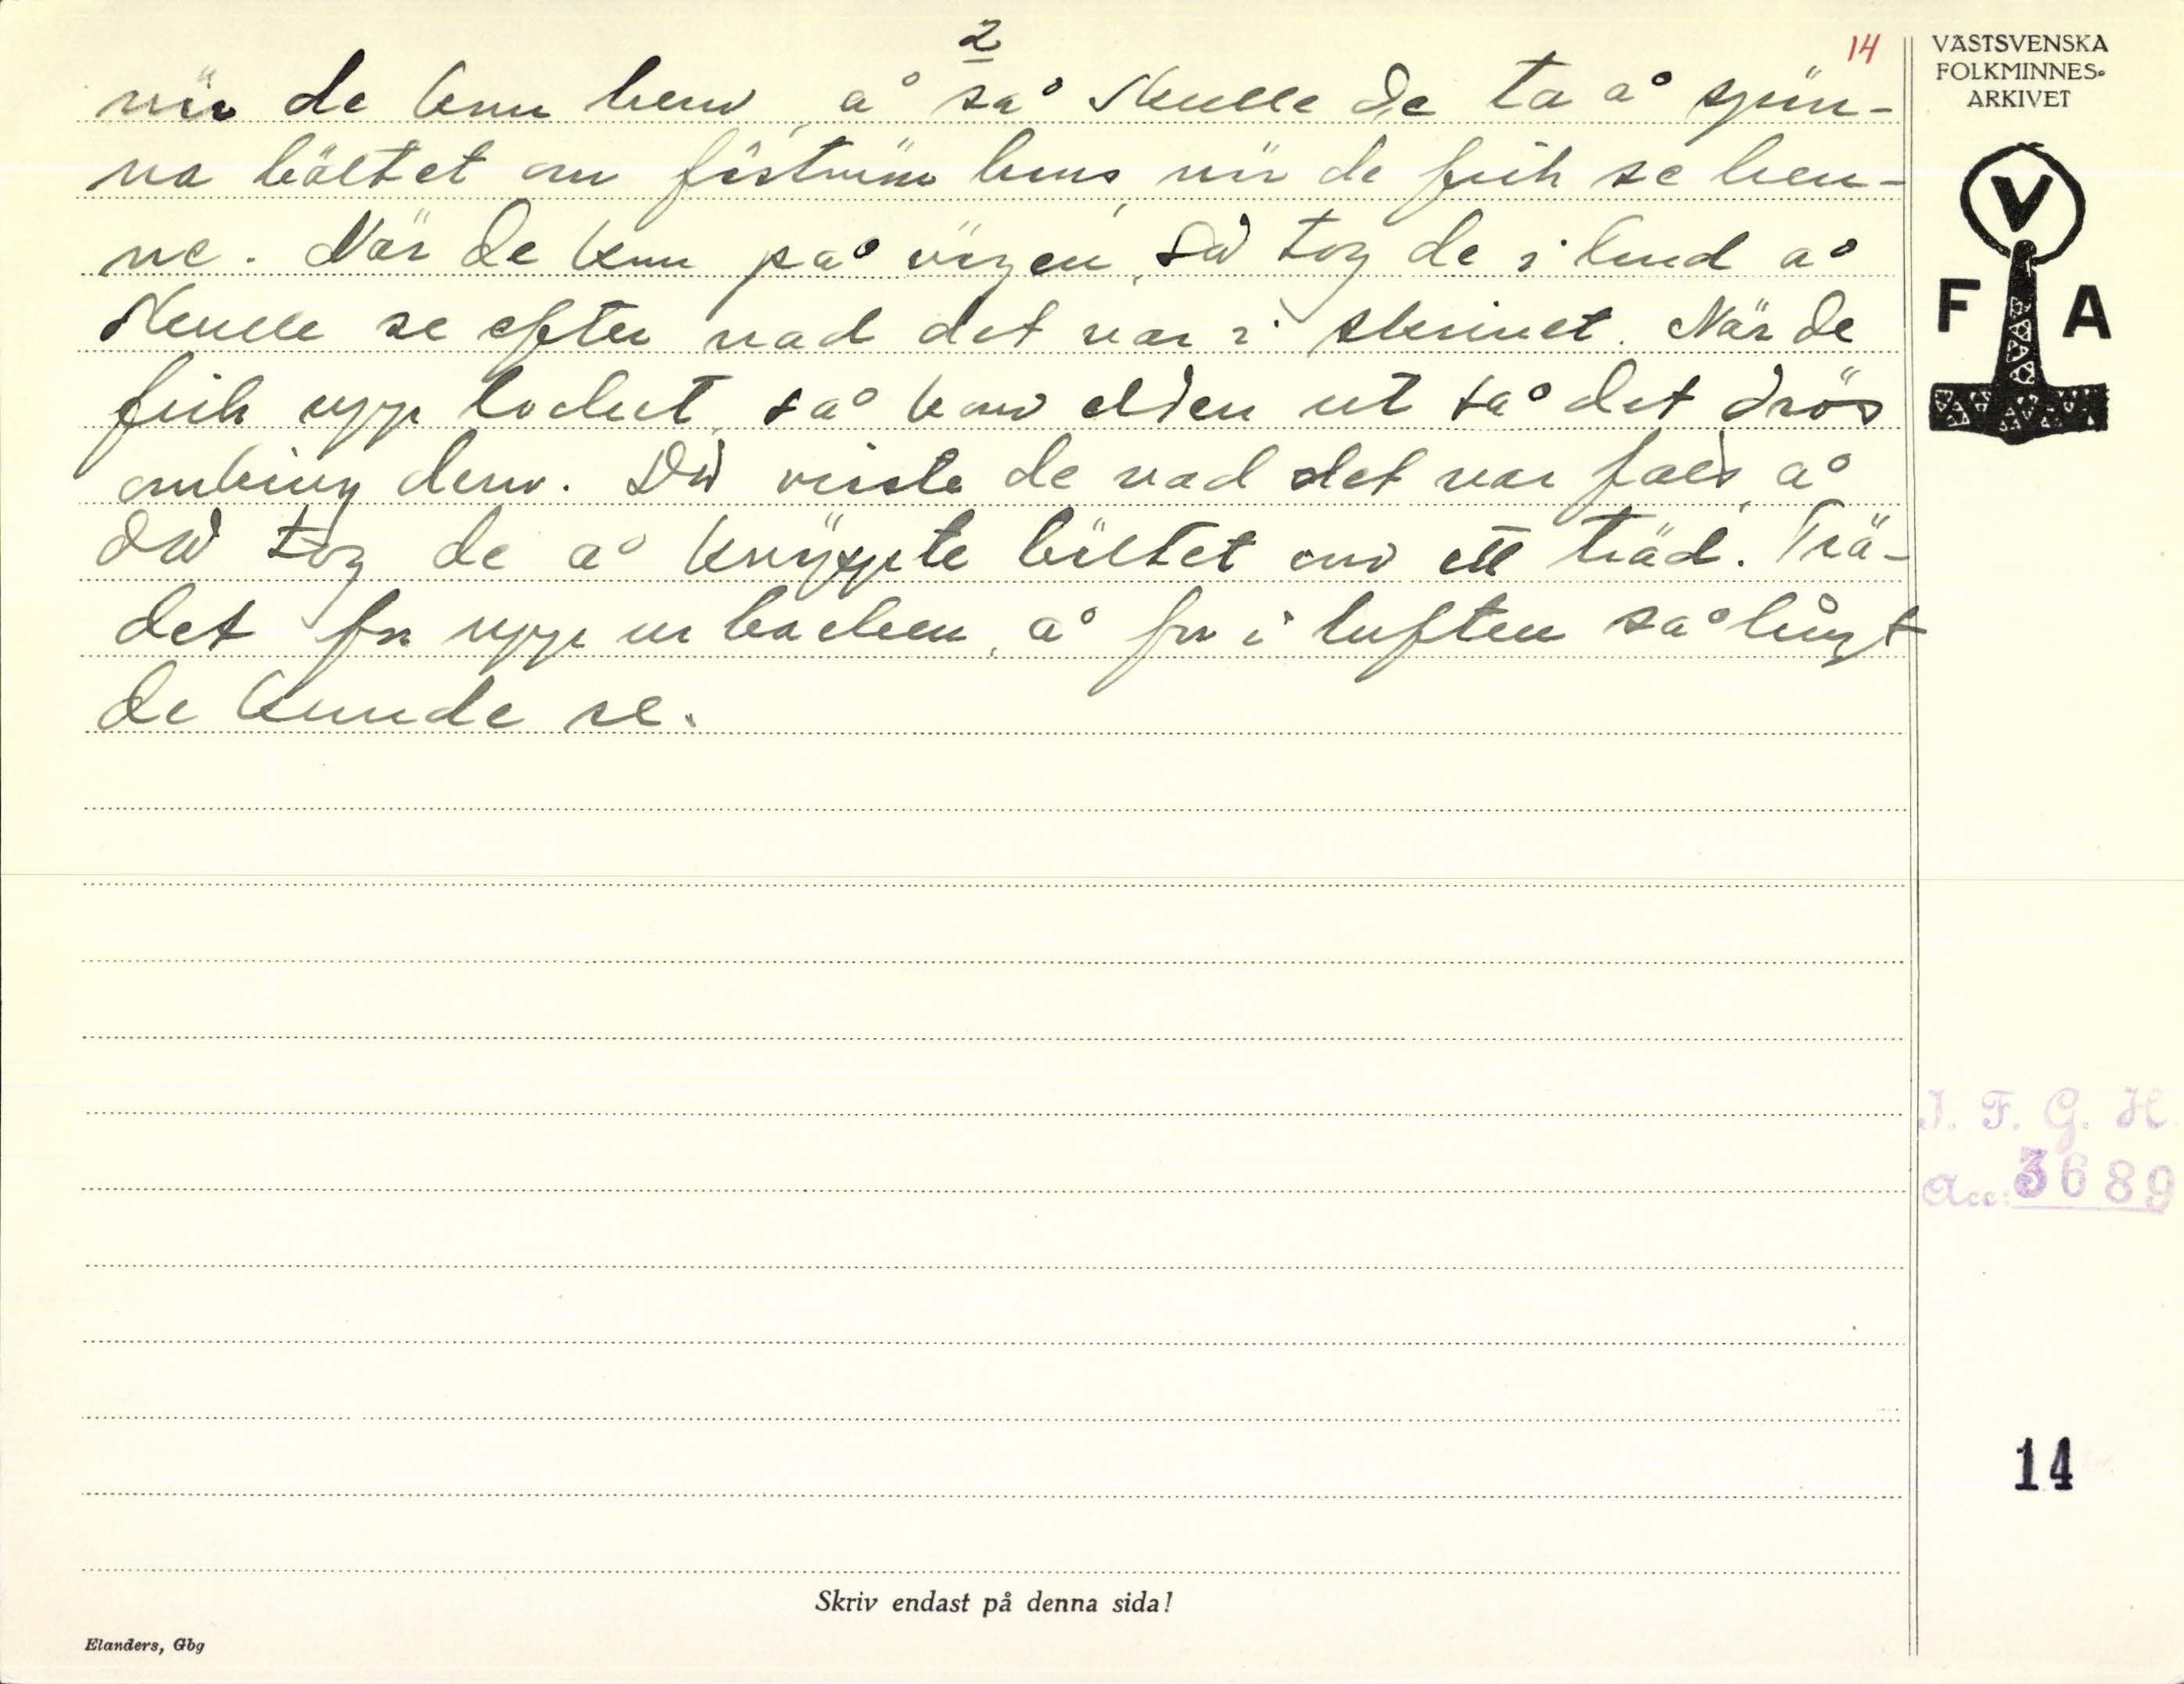 2
14
när de kom hem, å så skulle de ta å spän-
na bältet om fästmön hans, när de fick se hen-
ne. När de kom på vägen, så tog de i land å
skulle se efter vad det var i skrinet. När de
fick upp locket, så kom elden ut så det drös
omkring dem. Då visste de vad det var för, å
då tog de å knäppte bältet om ett träd. Trä-
det for upp ur backen, å for i luften så långt
de kunde se.
VÄSTSVENSKA
FOLKMINNES-
ARKIVET
V
F A
I. F. G. H.
Acc: 3689
14
Skriv endast på denna sida!
Elanders, Gbg